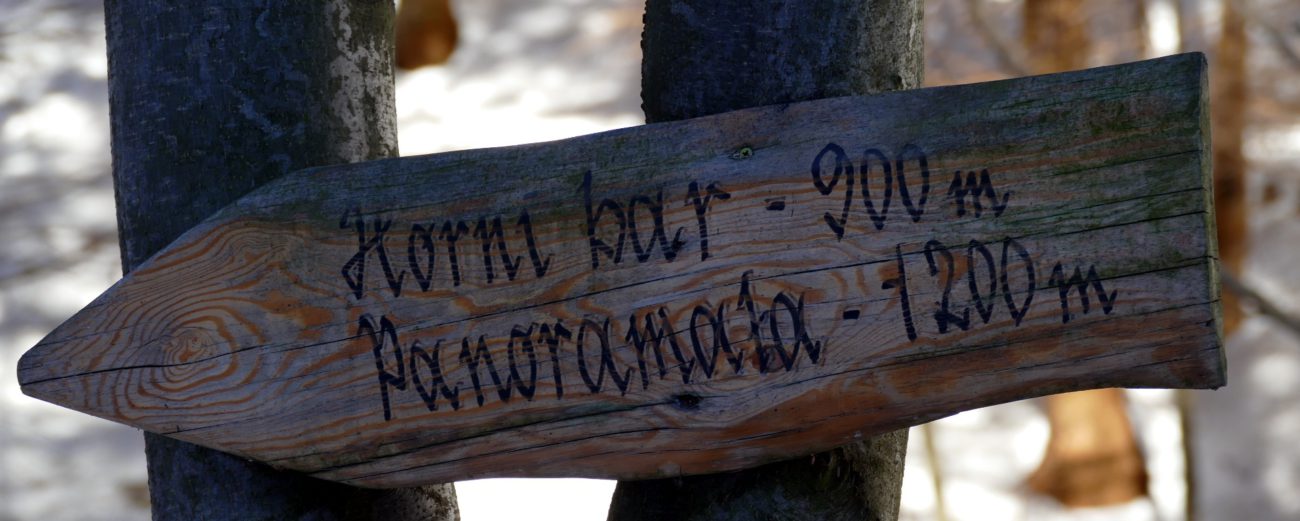 Horni bar - 900 m
Panoramata - 1200 m